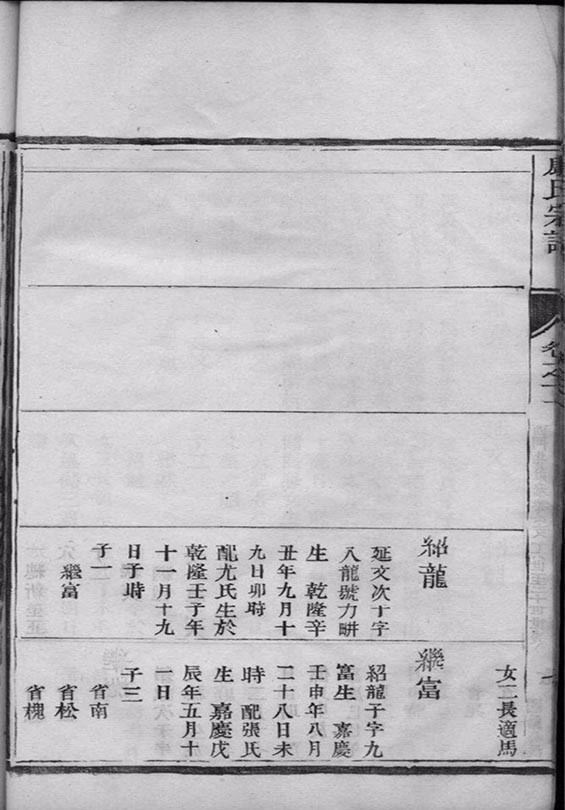 氏宗譜
卷之
紹龍
延文次丁字
八龍號力畊
生 乾隆辛
丑年九月十
九日卯時
配尤氏生於
乾隆壬子年
十一月十九
日子時
子一
繼富
女二長適馬
繼富
紹龍子字九
富生 嘉慶
壬申年八月
二十八日未
時 配張氏
生 嘉慶戊
辰年五月十
一日
子三
省南
省松
省槐